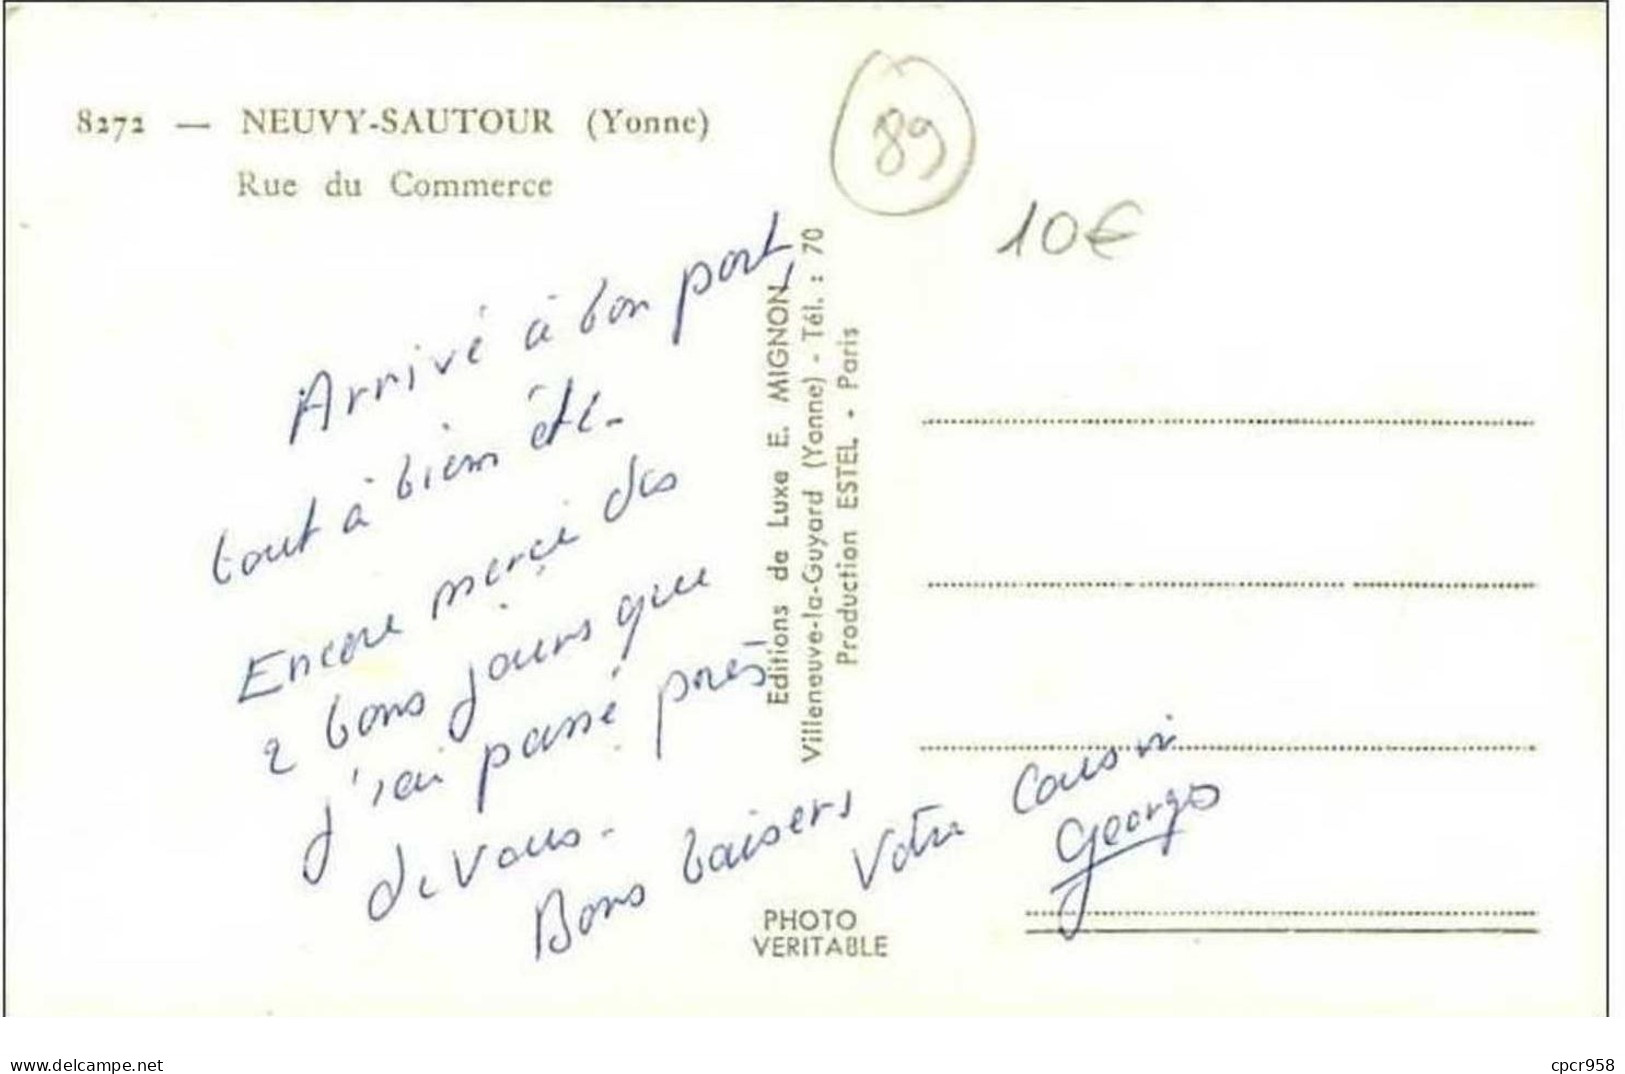 8272 — NEUVY-SAUTOUR (Yonne)
Rue du Commerce
89
10€
Arrivé à bon port,
tout à bien été.
Encore merçi des
2 bons jours que
j'ai passé près
de vous.
Bons baisers
Votre Cousin
Georges
Editions de Luxe E. MIGNON
Villeneuve-la-Guyard (Yonne) - Tél. : 70
Production ESTEL - Paris
PHOTO
VERITABLE
www.delcampe.net
cpcr958